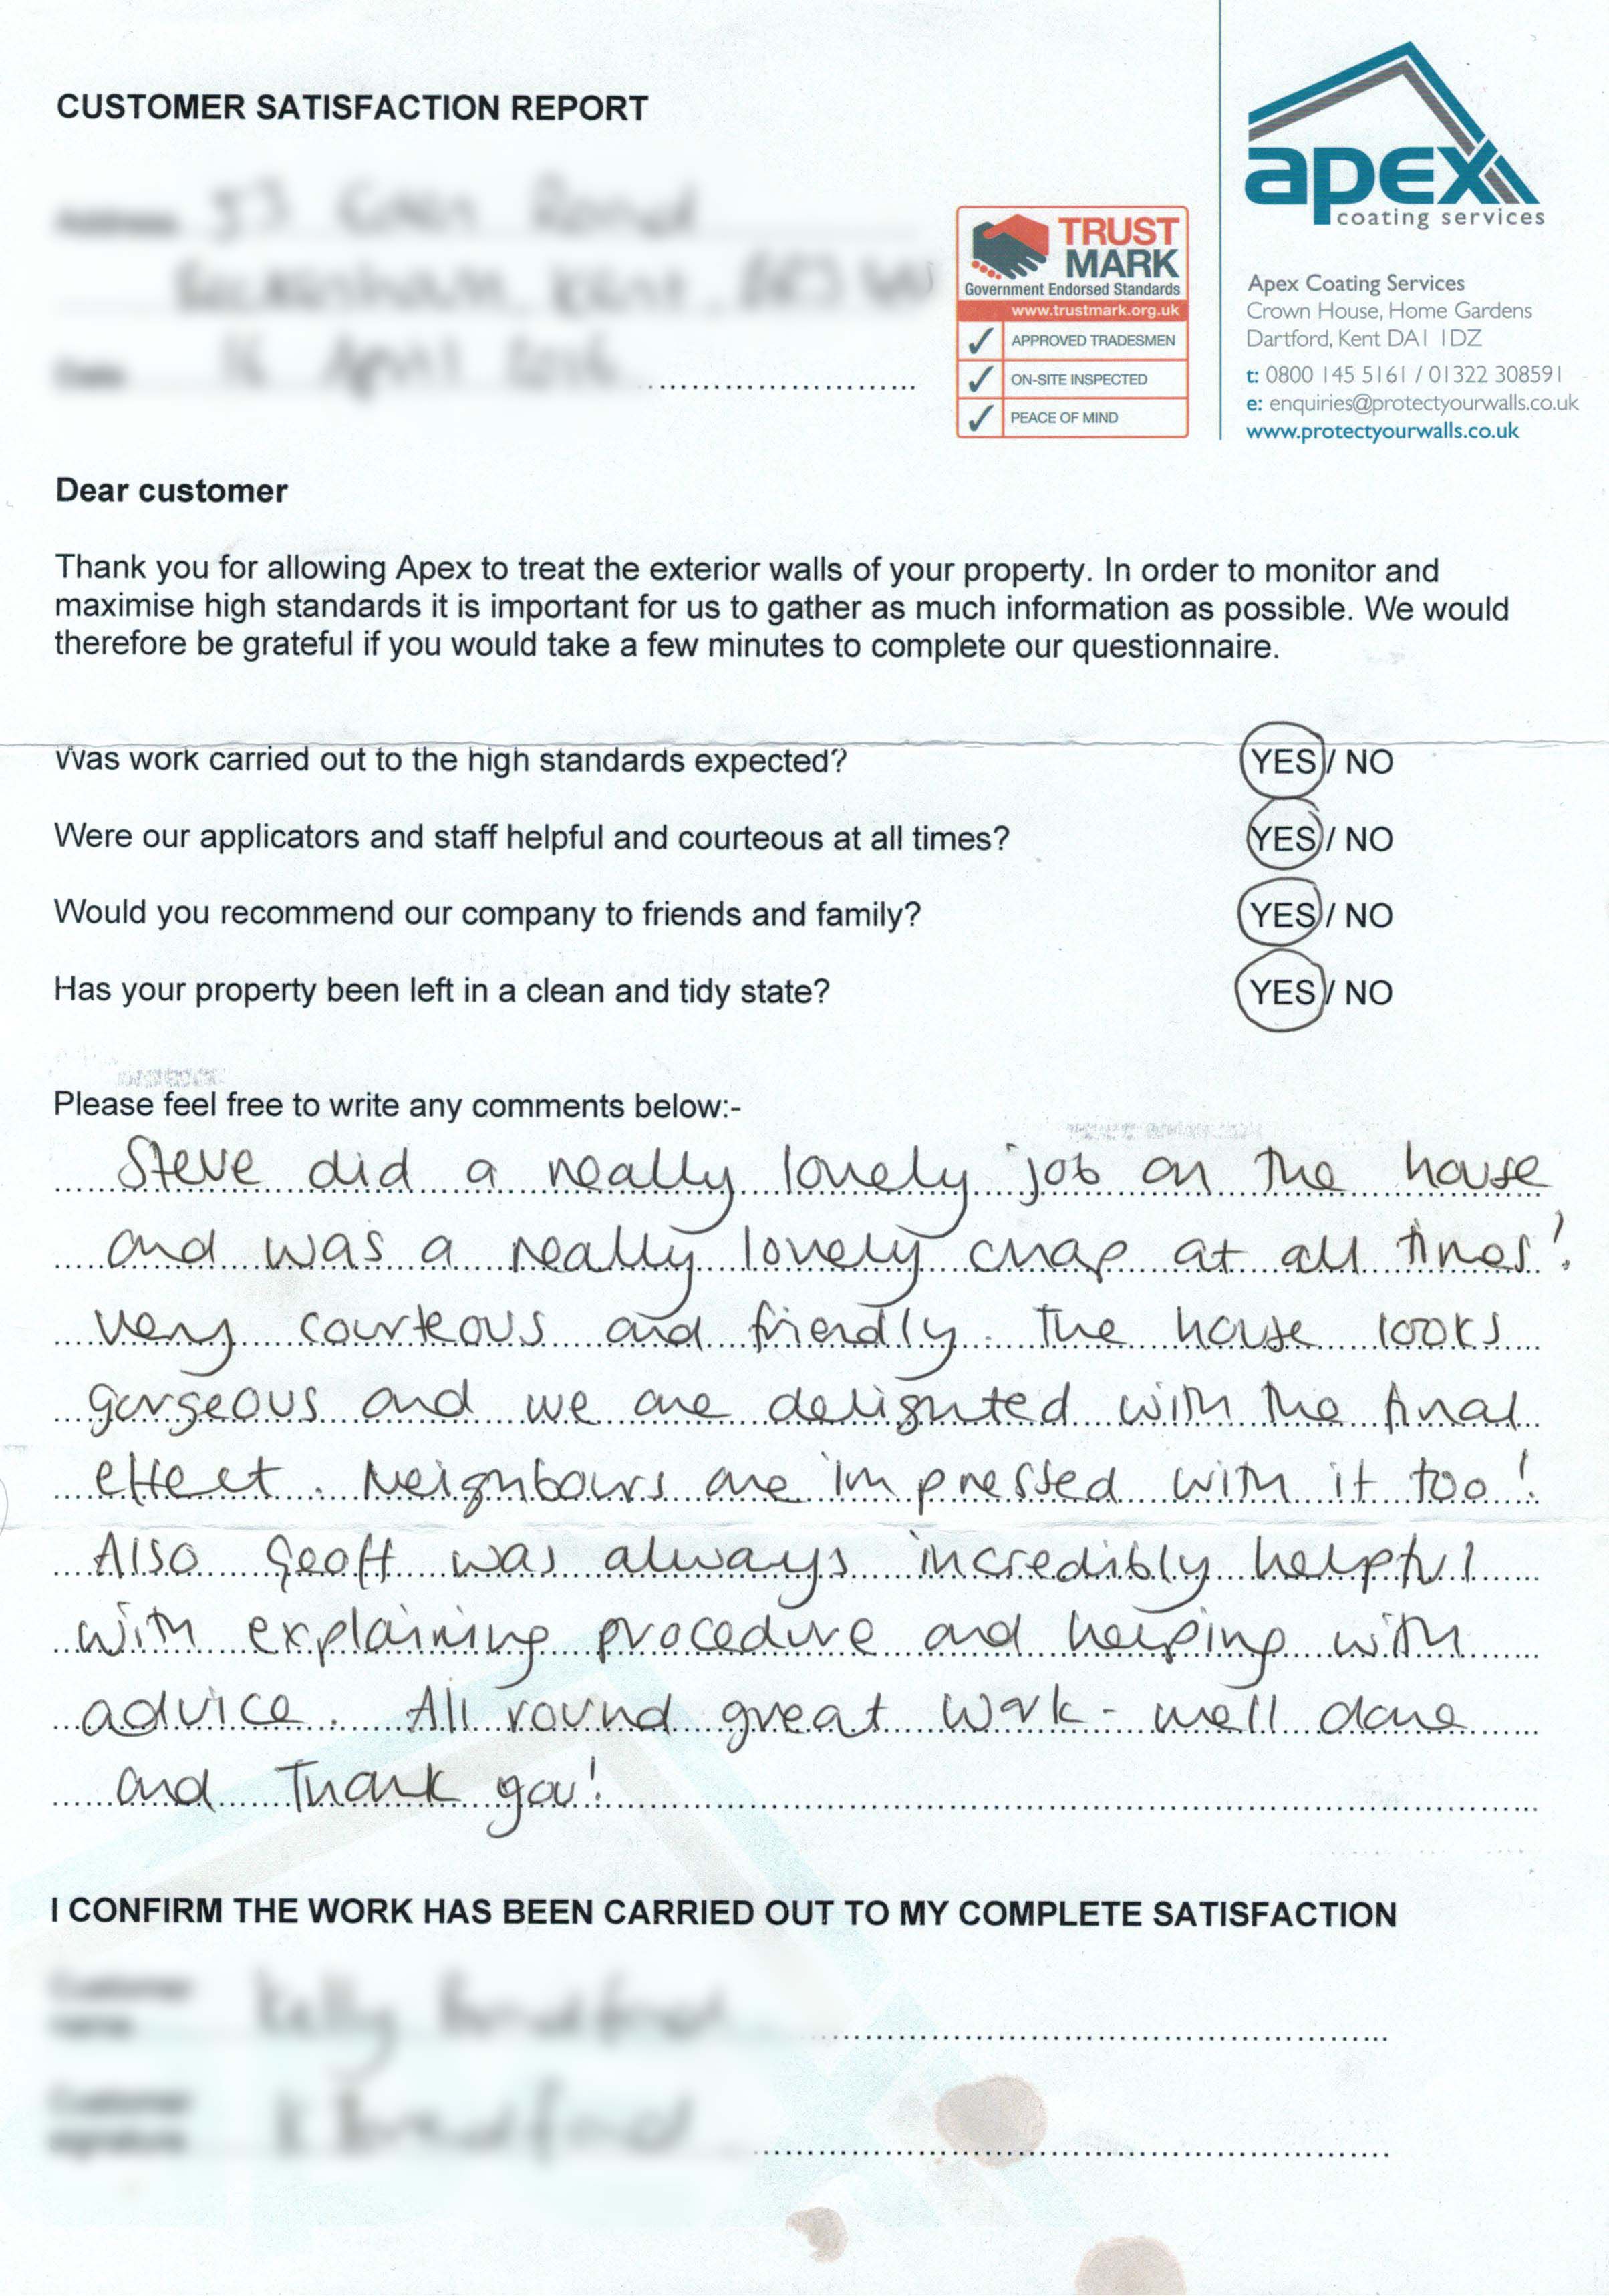 CUSTOMER SATISFACTION REPORT
apex
coating services
TRUST
MARK
Government Endorsed Standards
www.trustmark.org.uk
APPROVED TRADESMEN
ON-SITE INSPECTED
PEACE OF MIND
Apex Coating Services
Crown House, Home Gardens
Dartford, Kent DA1 1DZ
t: 0800 145 5161 / 01322 308591
e: enquiries@protectyourwalls.co.uk
www.protectyourwalls.co.uk
Dear customer
Thank you for allowing Apex to treat the exterior walls of your property. In order to monitor and
maximise high standards it is important for us to gather as much information as possible. We would
therefore be grateful if you would take a few minutes to complete our questionnaire.
Was work carried out to the high standards expected? YES / NO
Were our applicators and staff helpful and courteous at all times? YES / NO
Would you recommend our company to friends and family? YES / NO
Has your property been left in a clean and tidy state? YES / NO
Please feel free to write any comments below:-
Steve did a really lovely job on the house
and was a really lovely chap at all times!
very courteous and friendly. The house looks
gorgeous and we are delighted with the final
effect. Neighbours are impressed with it too!
Also Geoff was always incredibly helpful
with explaining procedure and helping with
advice. All round great work - well done
and Thank you!
I CONFIRM THE WORK HAS BEEN CARRIED OUT TO MY COMPLETE SATISFACTION